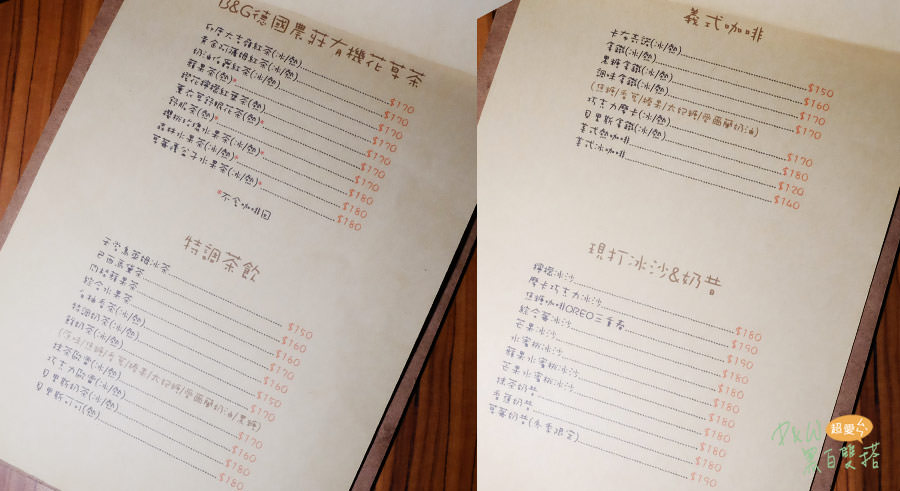 B&G德國農莊有機花草茶
印度大吉嶺紅茶(冰/熱) $170
黃金阿薩姆紅茶(冰/熱) $170
奶油伯爵紅茶(冰/熱) $170
蘋果茶(熱)* $170
橙花檸檬紅葉茶(熱) $170
薰衣草舒眠花茶(熱)* $170
舒眠茶(熱)* $170
櫻桃 水果茶(冰/熱)* $180
森林水果茶(冰/熱)* $180
草莓 公子水果茶(冰/熱)* $180
*不含咖啡因
特調茶飲
天堂烏巫姆冰茶 $150
巴西馬黛茶 $160
肉桂蘋果茶 $160
綜合水果茶 $170
台柚香茶(冰/熱) $160
特調奶茶(冰/熱) $150
鮮奶茶(冰/熱) $170
(原味/焦糖/香草/榛果/太妃糖/愛爾蘭奶油/黑糖)
抹茶歐蕾(冰/熱) $170
巧克力歐蕾(冰/熱) $160
貝里斯奶茶(冰/熱) $180
貝里斯可可(熱) $180
義式咖啡
卡布奇諾(冰/熱) $150
拿鐵(冰/熱) $160
黑糖拿鐵(冰/熱) $170
調味拿鐵(冰/熱) $170
(焦糖/香草/榛果/太妃糖/愛爾蘭奶油)
巧克力摩卡(冰/熱) $170
貝里斯拿鐵(冰/熱) $180
美式熱咖啡 $120
美式冰咖啡 $140
現打冰沙&奶昔
檸檬冰沙 $180
摩卡巧克力冰沙 $190
焦糖咖啡OREO三重奏 $190
綜合莓冰沙 $180
芒果冰沙 $180
水蜜桃冰沙 $180
蘋果水蜜桃冰沙 $180
芒果水蜜桃冰沙 $180
抹茶奶昔 $180
香蕉奶昔 $180
草莓奶昔(冬季限定) $190
超愛ㄘ
黑白雙搭